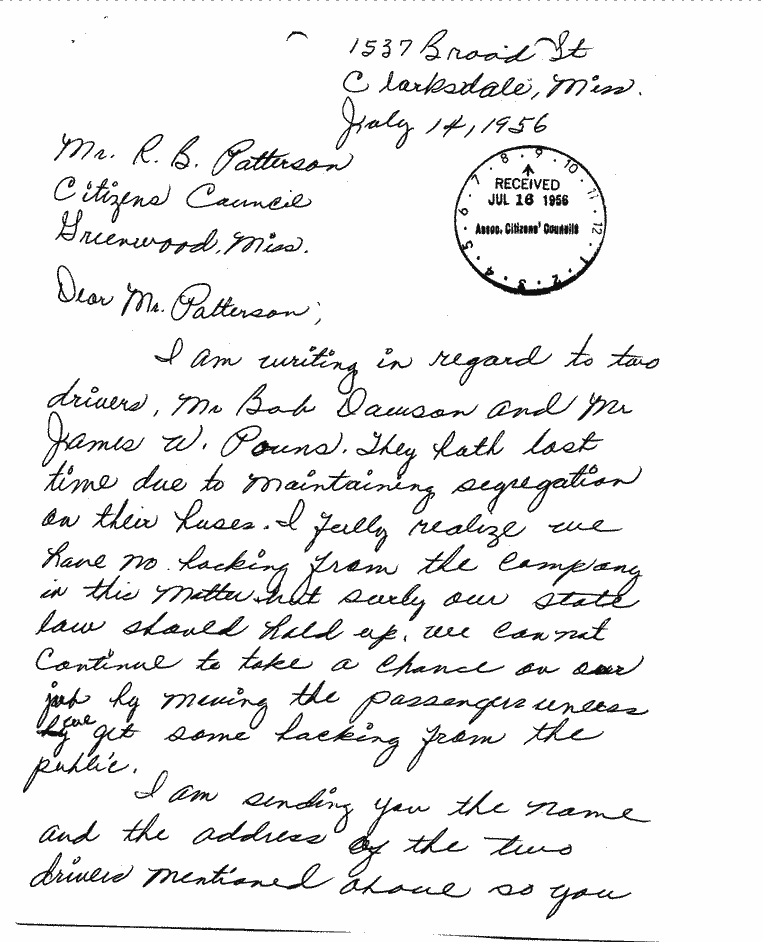 1537 Broad St
Clarksdale, Miss.
July 14, 1956
Mr. R. B. Patterson
Citizens Council
Greenwood, Miss.
7 8 9 10 11 12 1 2 3 4 5 6
RECEIVED
JUL 16 1956
Assoc. Citizens' Councils
Dear Mr. Patterson,
I am writing in regard to two
drivers, Mr Bob Dawson and Mr
James W. Pouns. They both lost
time due to maintaining segregation
on their buses. I fully realize we
have no backing from the company
in this matter but surly our state
law should hold up. we can not
continue to take a chance on our
job by moving the passengers unless
we get some backing from the
public.
I am sending you the name
and the address of the two
drivers mentioned above so you